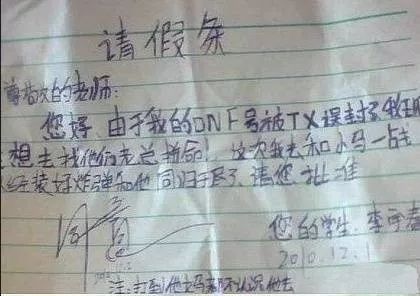 请假条
尊敬的老师:
您好,由于我的DNF号被TX误封了,我
想去找他们老总拼命!这次我去和小马一战
经装好炸弹和他同归于尽了,请您批准
同意
您的学生:李宇
2010.12.1
注:打到他妈都不认识他